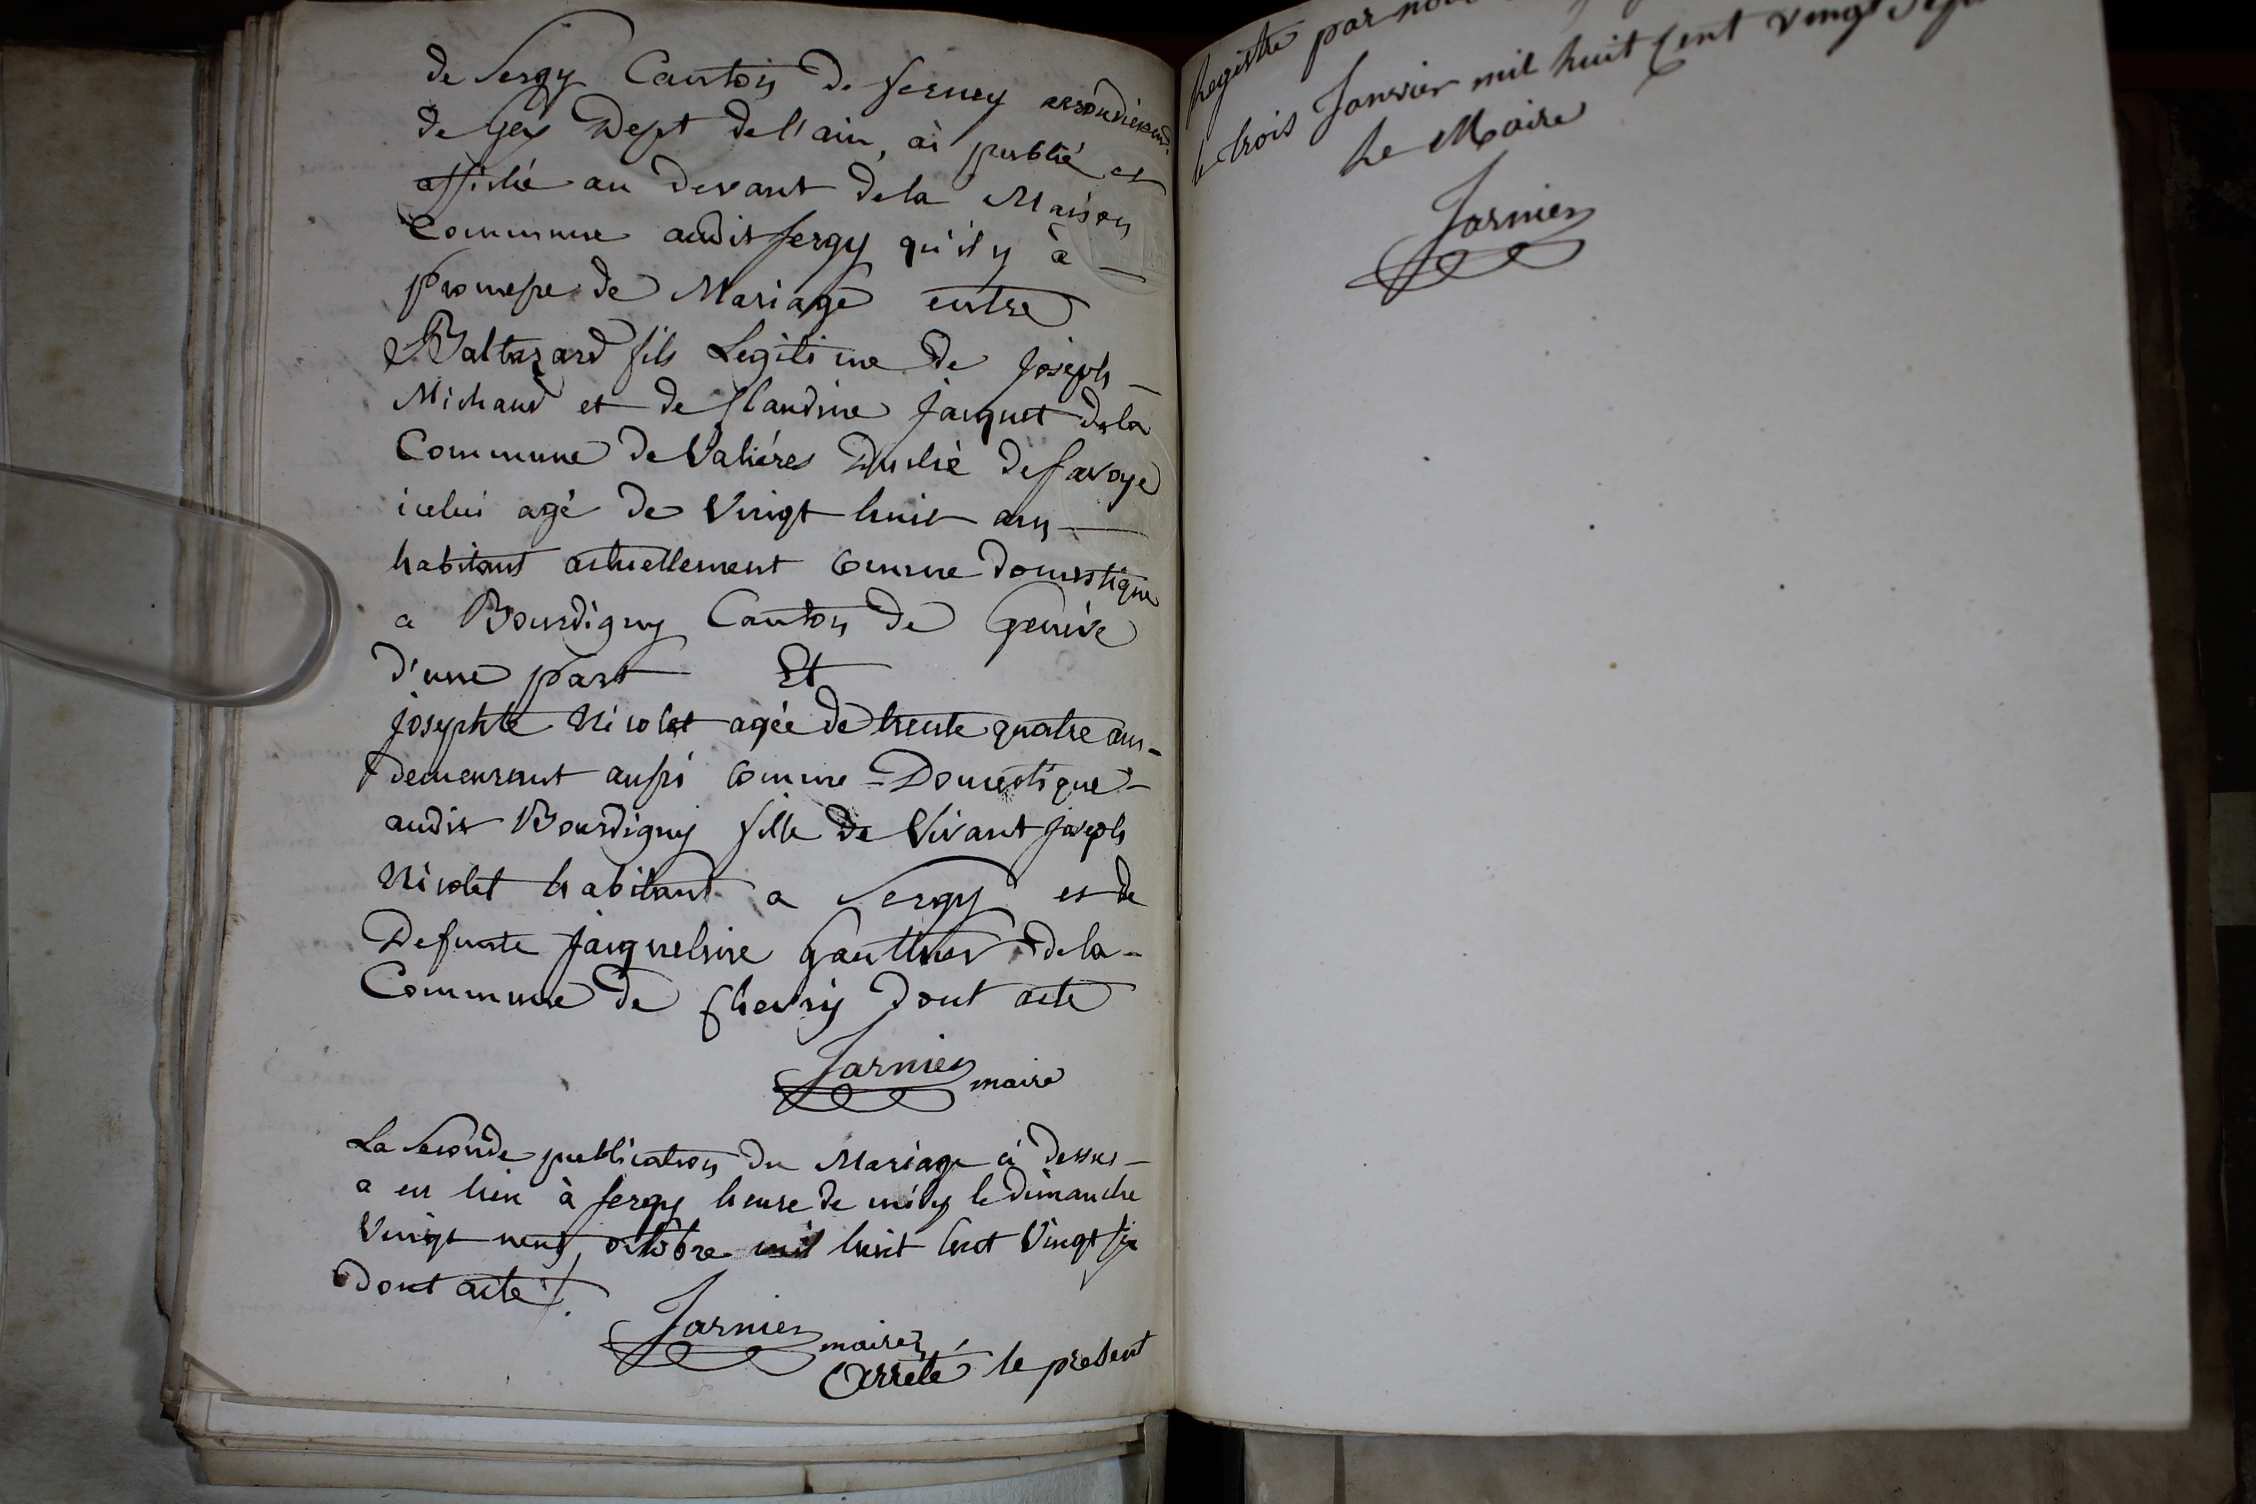 de Sergy Canton de ferney arrondissemt.
de Gex Dept de l'ain, ai publié et
affiché au devant de la Maison
Commune audit Sergy qu'il y à
promesse de Mariage entre
Baltazard fils Legitime de Joseph
Michaud et de Claudine Jacquet de la
Commune de Valiéres Duché de Savoye
icelui agé de Vingt huit ans
habitant actuellement comme domestique
a Bourdigny Canton de Genève
d'une part Et
Josephte Nicolet agée de trente quatre ans
demeurant aussi comme Domestique
audit Bourdigny fille de Vivant Joseph
Nicolet habitant a Sergy et de
Defunte Jacqueline Gauthier de la
Commune de Chevry dont acte
Jarnier maire
La Seconde publication du Mariage ci dessus
a eu lieu à Sergy heure de midy le dimanche
Vingt neuf octobre mil huit Cent Vingt six
dont acte.
Jarnier maire
Arrêté le présent
Registre par nous
le trois Janvier mil huit Cent vingt Sept
Le Maire
Jarnier